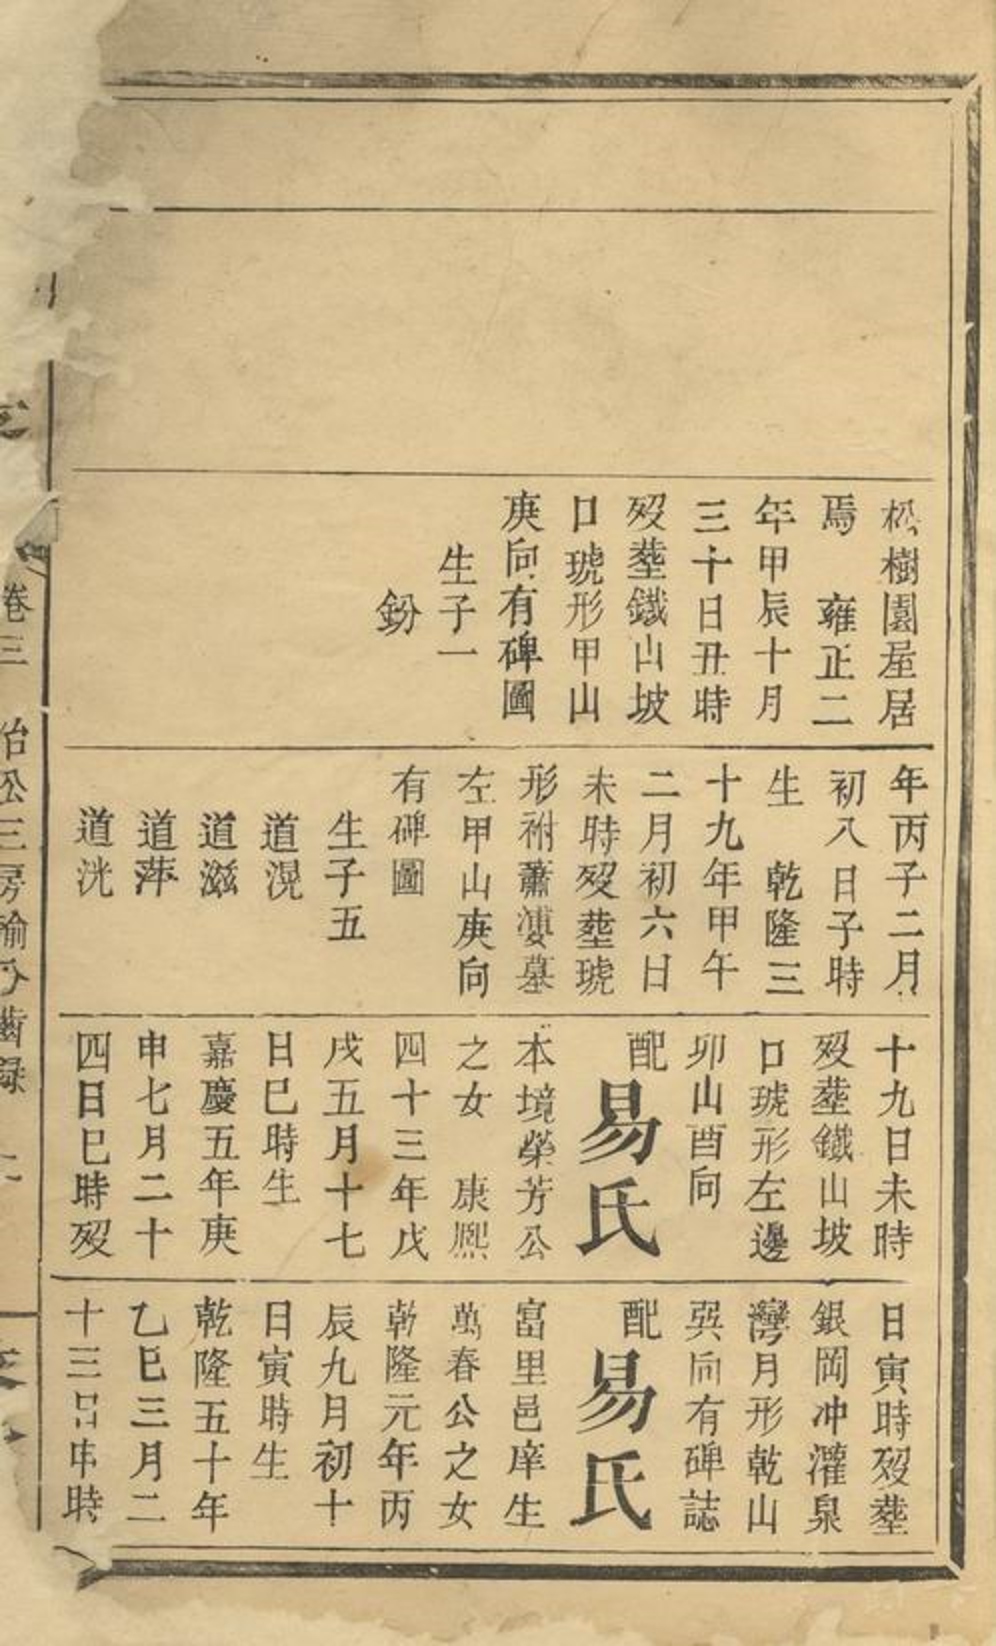 松樹園屋居
焉　雍正二
年甲辰十月
三十日丑時
歿塟鐵山坡
口琥形甲山
庚向有碑圖
生子一
鈖
年丙子二月
初八日子時
生　乾隆三
十九年甲午
二月初六日
未時歿塟琥
形祔蕭墓
左甲山庚向
有碑圖
生子五
道滉
道滋
道萍
道洸
十九日未時
歿塟鐵山坡
口琥形左邊
卯山酉向
配
易氏
本境榮芳公
之女　康熙
四十三年戊
戌五月十七
日巳時生
嘉慶五年庚
申七月二十
四日巳時歿
日寅時歿塟
銀岡冲灌泉
灣月形乾山
巽向有碑誌
配
易氏
富里邑庠生
萬春公之女
乾隆元年丙
辰九月初十
日寅時生
乾隆五十年
乙巳三月二
十三日申時
卷三　公三房分齒録